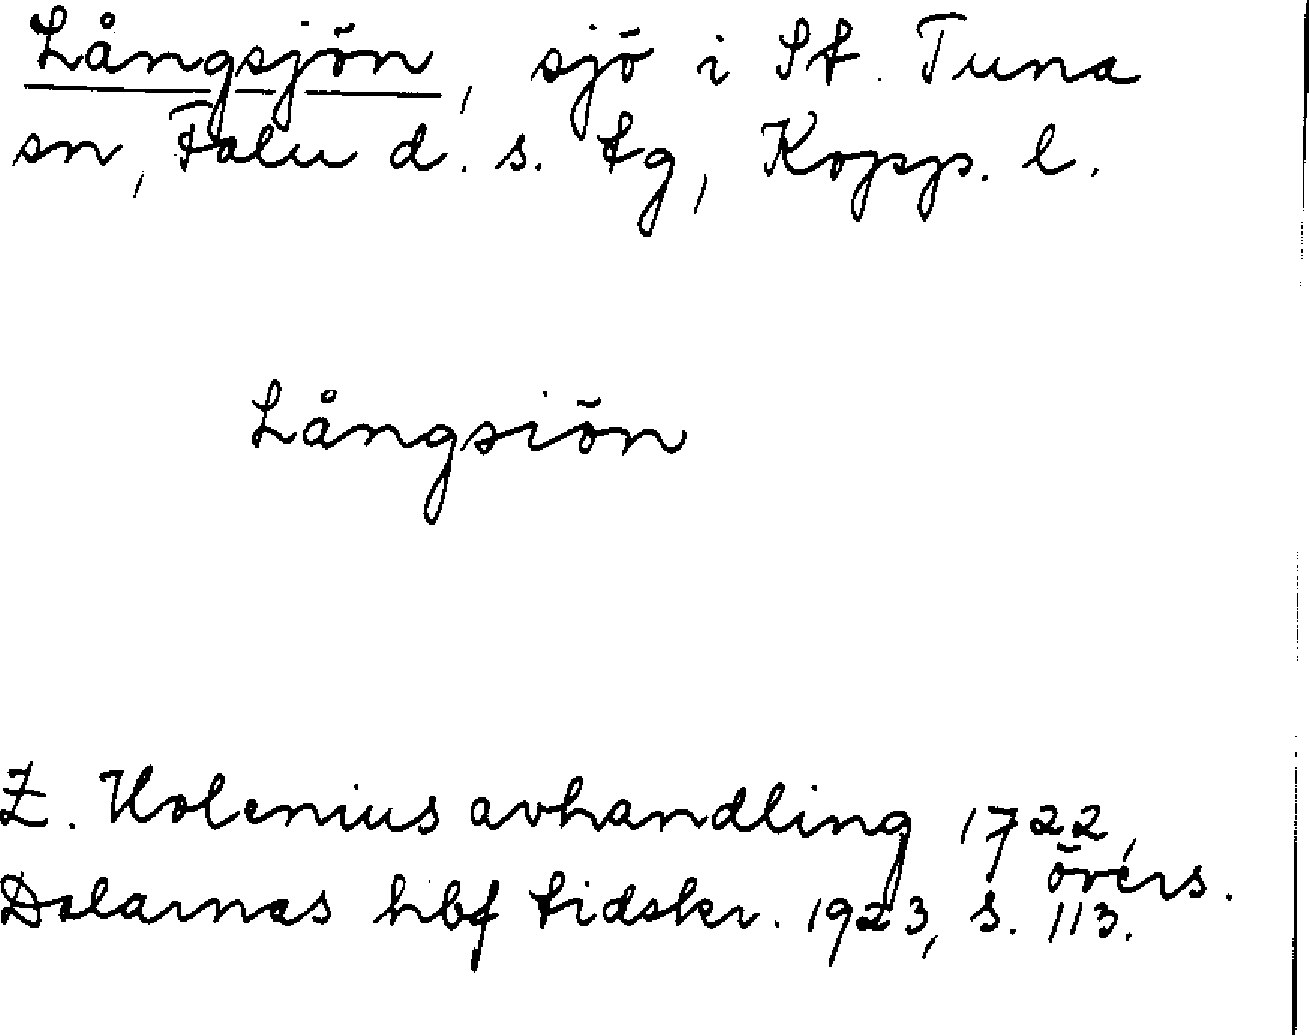 Långsjön, sjö i St. Tuna
sn, Falu d. s. tg, Kopp. l.
Långsiön
Z. Holenius avhandling 1722,
övers.
Dalarnas hbf tidskr. 1923, s. 113.